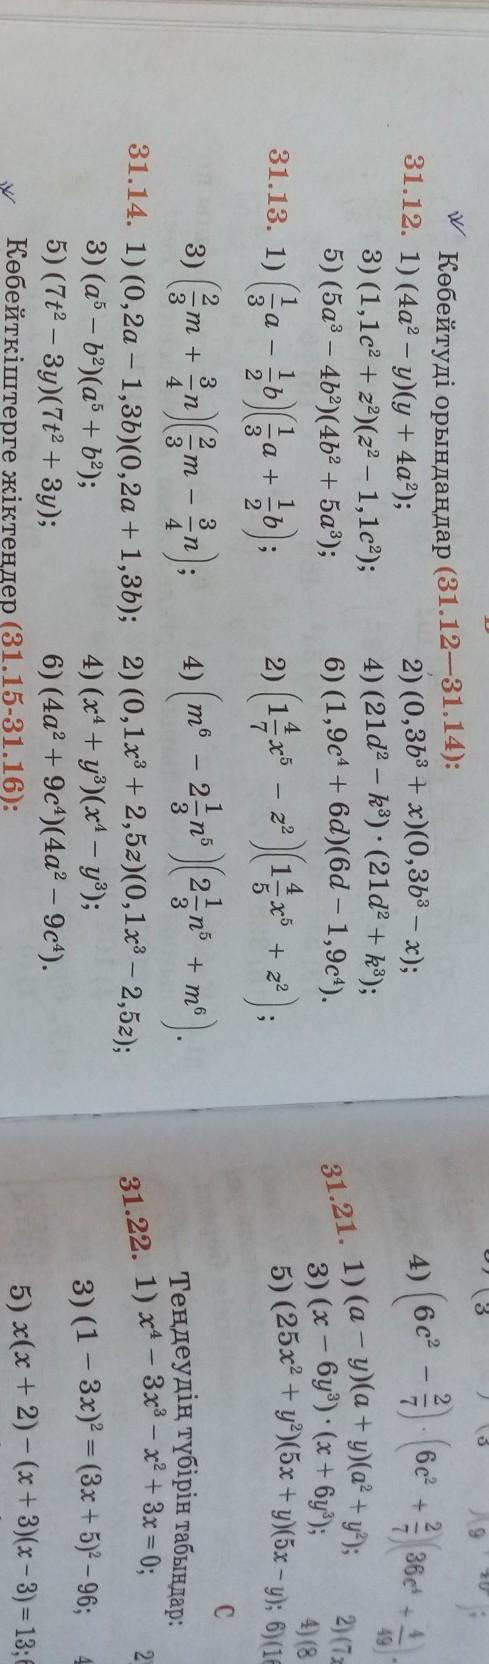 Көбейтуді орындаңдар (31.12—31.14):
31.12. 1) (4a² − y)(y + 4a²); 2) (0,3b³ + x)(0,3b³ − x);
3) (1,1c² + z²)(z² − 1,1c²); 4) (21d² − k³) · (21d² + k³);
5) (5a³ − 4b²)(4b² + 5a³); 6) (1,9c⁴ + 6d)(6d − 1,9c⁴).
31.13. 1) (1/3 a − 1/2 b)(1/3 a + 1/2 b); 2) (1 4/7 x⁵ − z²)(1 4/5 x⁵ + z²);
3) (2/3 m + 3/4 n)(2/3 m − 3/4 n); 4) (m⁶ − 2 1/3 n⁵)(2 1/3 n⁵ + m⁶).
31.14. 1) (0,2a − 1,3b)(0,2a + 1,3b); 2) (0,1x³ + 2,5z)(0,1x³ − 2,5z);
3) (a⁵ − b²)(a⁵ + b²); 4) (x⁴ + y³)(x⁴ − y³);
5) (7t² − 3y)(7t² + 3y); 6) (4a² + 9c⁴)(4a² − 9c⁴).
Көбейткіштерге жіктеңдер (31.15-31.16):
4) (6c² − 2/7) · (6c² + 2/7)(36c⁴ + 4/49).
31.21. 1) (a − y)(a + y)(a² + y²); 2) (7x
3) (x − 6y³) · (x + 6y³); 4) (8
5) (25x² + y²)(5x + y)(5x − y); 6) (16
C
Теңдеудің түбірін табыңдар:
31.22. 1) x⁴ − 3x³ − x² + 3x = 0; 2
3) (1 − 3x)² = (3x + 5)² − 96; 4
5) x(x + 2) − (x + 3)(x − 3) = 13; 6